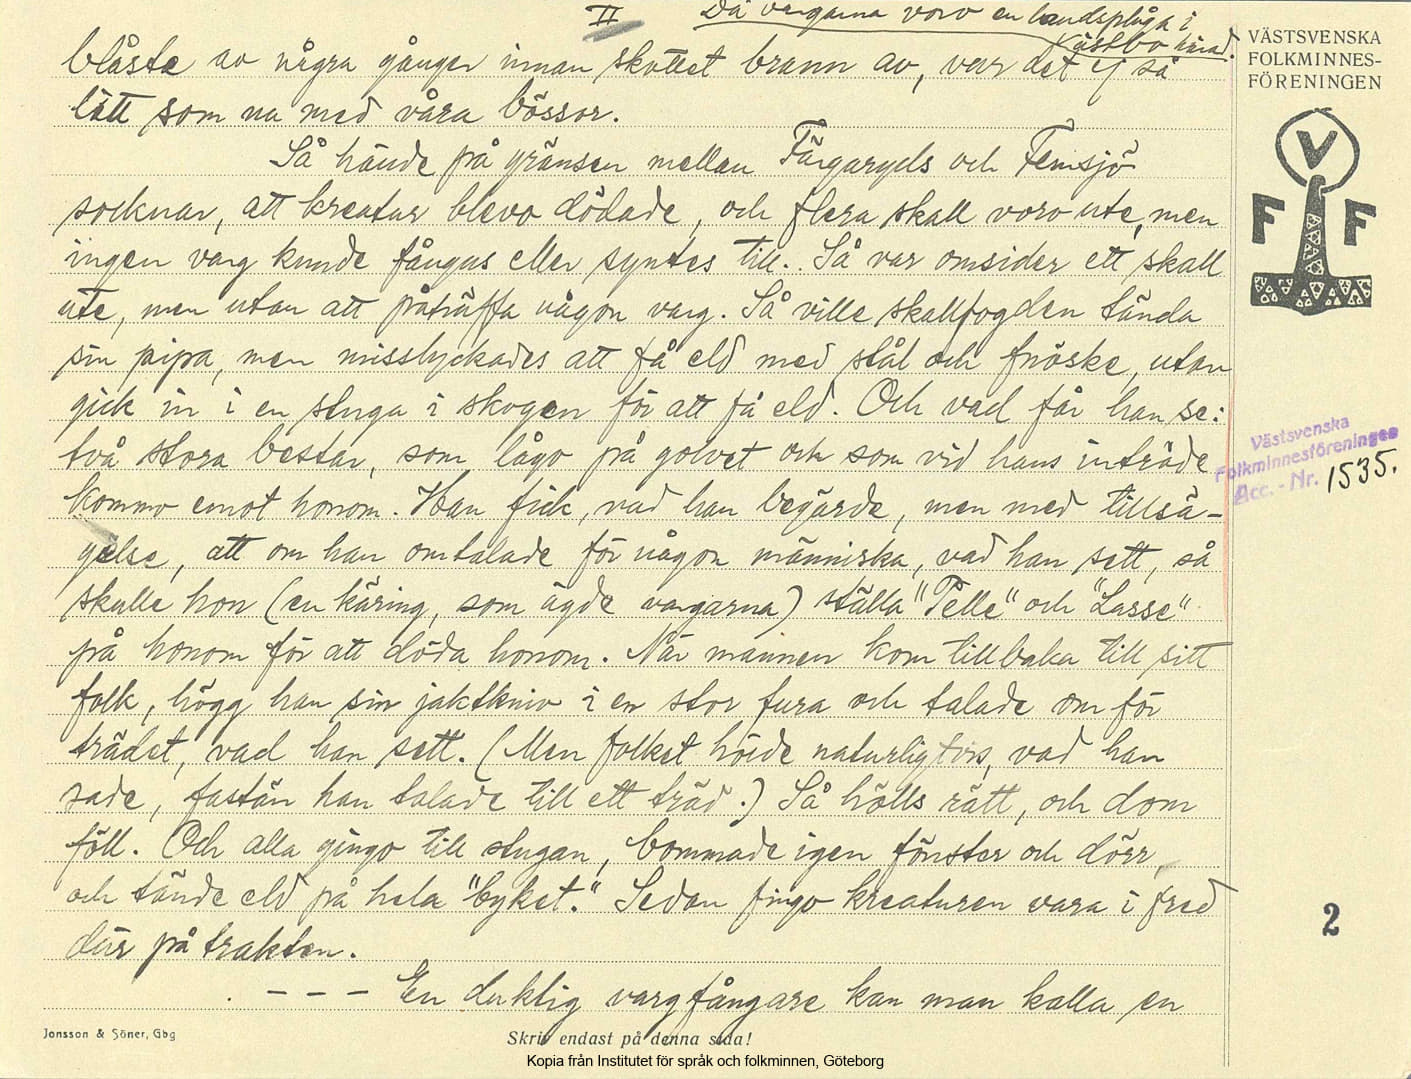 II Då vargarna voro en landsplåga i
Västbo härad.
blåste av några gånger innan skottet brann av, var det ej så
lätt som nu med våra bössor.
Så hände på gränsen mellan Färgaryds och Femsjö
socknar, att kreatur blevo dödade, och flera skall voro ute, men
ingen varg kunde fångas eller syntes till. Så var omsider ett skall
ute, men utan att påträffa någon varg. Så ville skallfogden tända
sin pipa, men misslyckades att få eld med stål och fnöske, utan
gick in i en stuga i skogen för att få eld. Och vad får han se:
två stora bestar, som lågo på golvet och som vid hans inträde
kommo emot honom. Han fick, vad han begärde, men med tillsä-
gelse, att om han omtalade för någon människa, vad han sett, så
skulle hon (en käring, som ägde vargarna) ställa "Pelle" och "Lasse"
på honom för att döda honom. När mannen kom tillbaka till sitt
folk, högg han sin jaktkniv i en stor fura och talade om för
trädet, vad han sett. (Men folket hörde naturligtvis, vad han
sade, fastän han talade till ett träd.) Så hölls rätt, och dom
föll. Och alla gingo till stugan, bommade igen fönster och dörr,
och tände eld på hela "byket." Sedan fingo kreaturen vara i fred
där på trakten.
. - - - En duktig vargfångare kan man kalla en
VÄSTSVENSKA
FOLKMINNES-
FÖRENINGEN
V
F F
Västsvenska
Folkminnesföreningen
Acc. - Nr. 1535.
2
Jonsson & Söner, Gbg
Skriv endast på denna sida!
Kopia från Institutet för språk och folkminnen, Göteborg